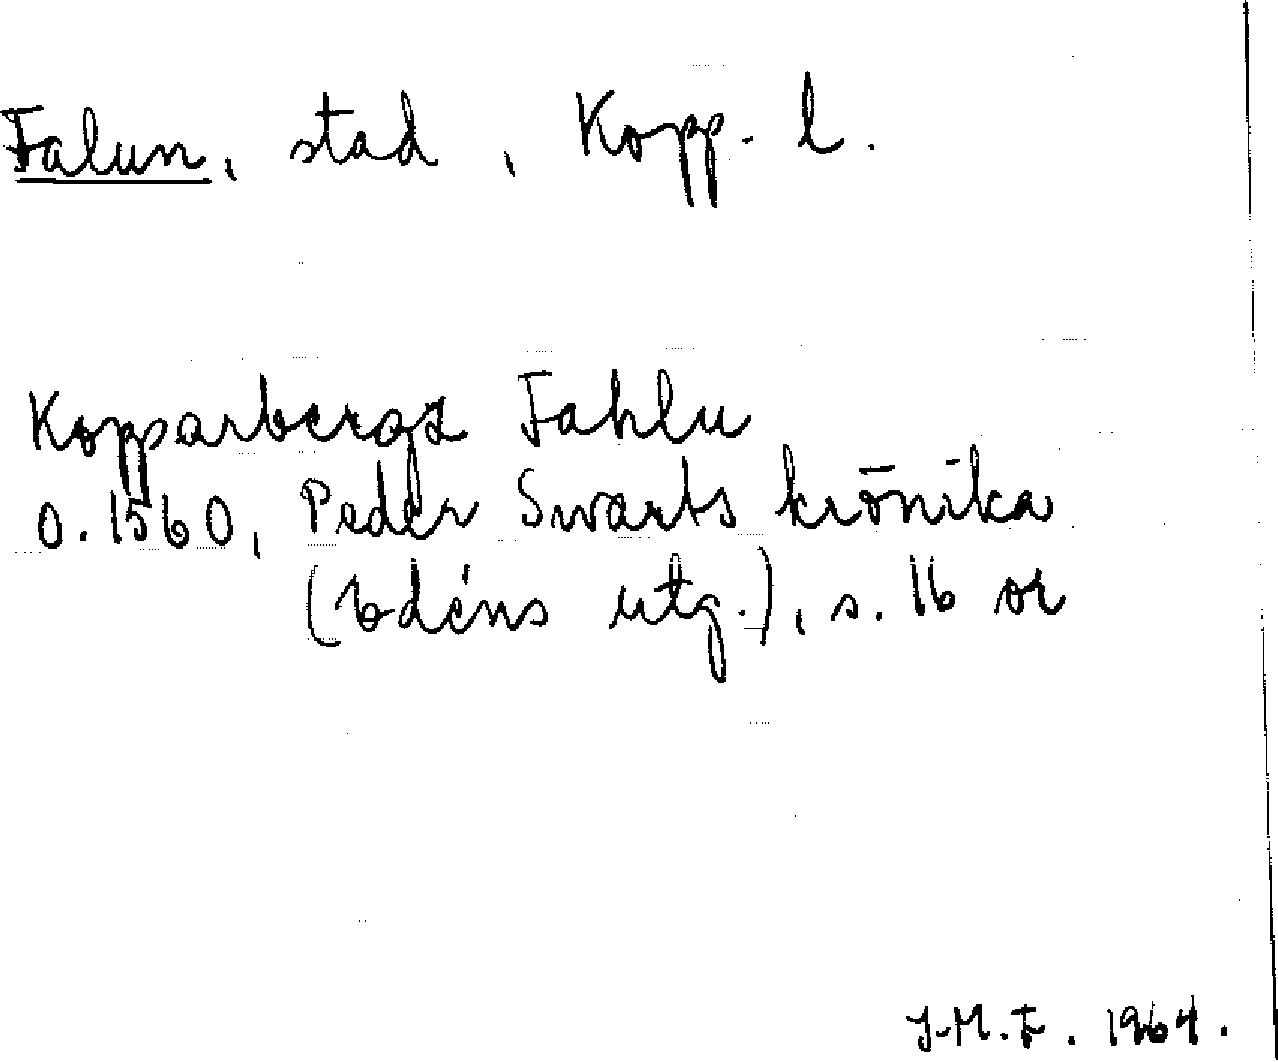 Falun, stad, Kopp. l.
Kopparbergz Fahlu
o. 1560, Peder Swarts krönika
(Edéns utg.), s. 16 or
J-M. F. 1964.